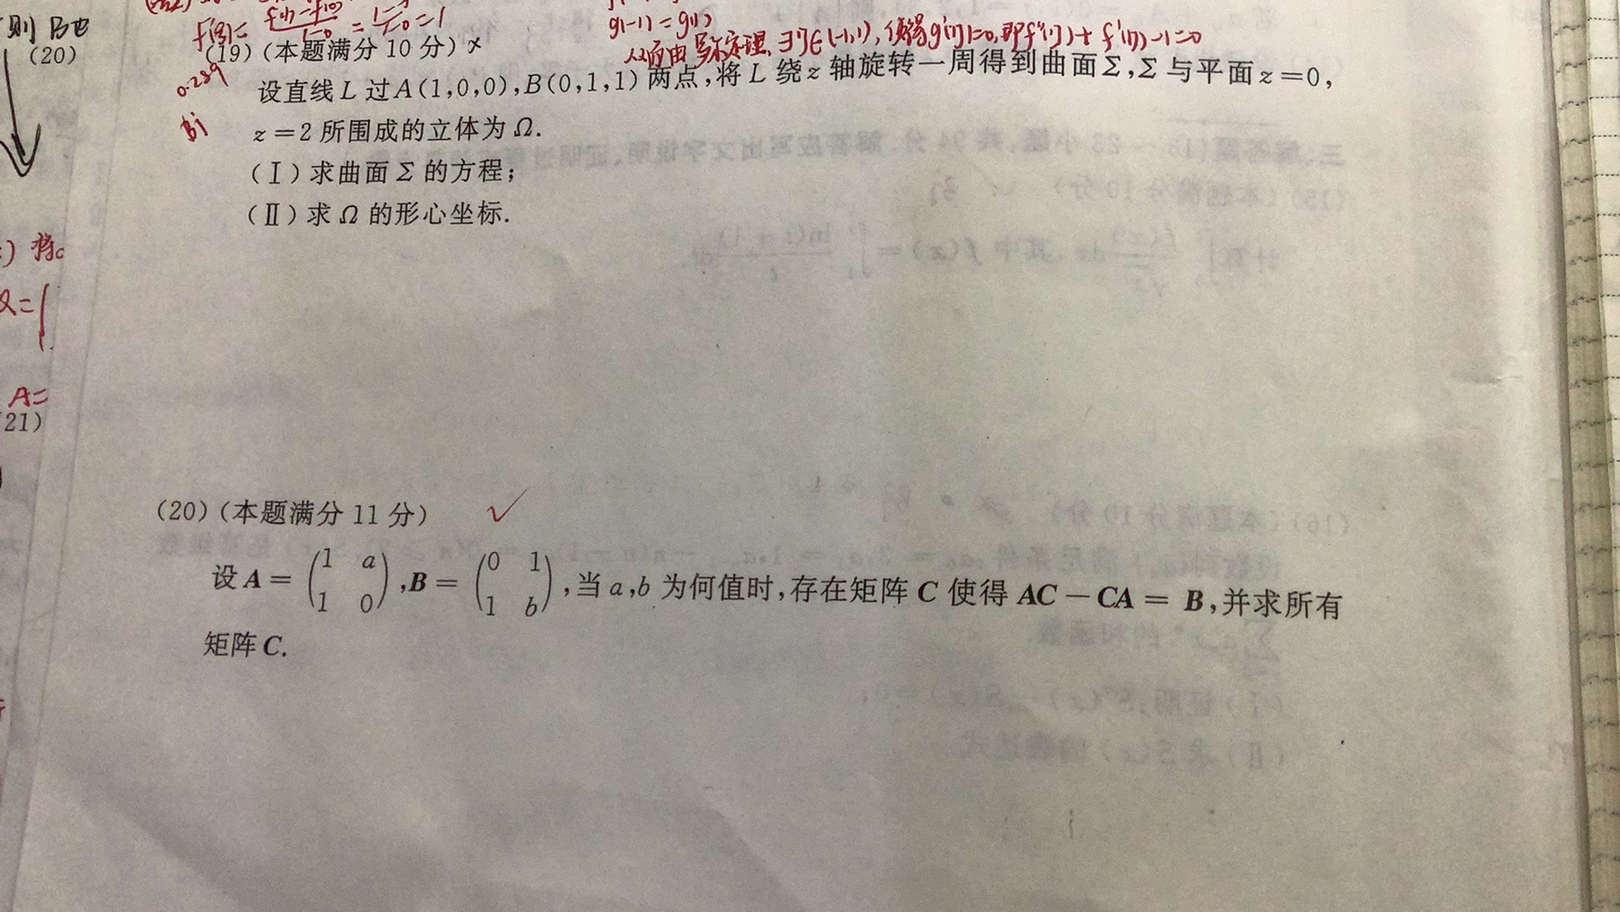 则 B也
(20)
f'(ξ)= f(1)-f(0) / 1-0 = 1-0 / 1-0 =1
g(-1) = g(1)
从而由罗尔定理,∃η∈(-1,1),使得g'(η)=0,即f''(η)+f'(η)-1=0
(19)(本题满分 10 分) ×
0.289
设直线 L 过 A(1,0,0),B(0,1,1) 两点,将 L 绕 z 轴旋转一周得到曲面 Σ,Σ 与平面 z=0,
z=2 所围成的立体为 Ω.
(Ⅰ) 求曲面 Σ 的方程;
(Ⅱ) 求 Ω 的形心坐标.
A=
(21)
(20)(本题满分 11 分) ✓
设 A = (1 a; 1 0), B = (0 1; 1 b), 当 a,b 为何值时,存在矩阵 C 使得 AC - CA = B,并求所有
矩阵 C.